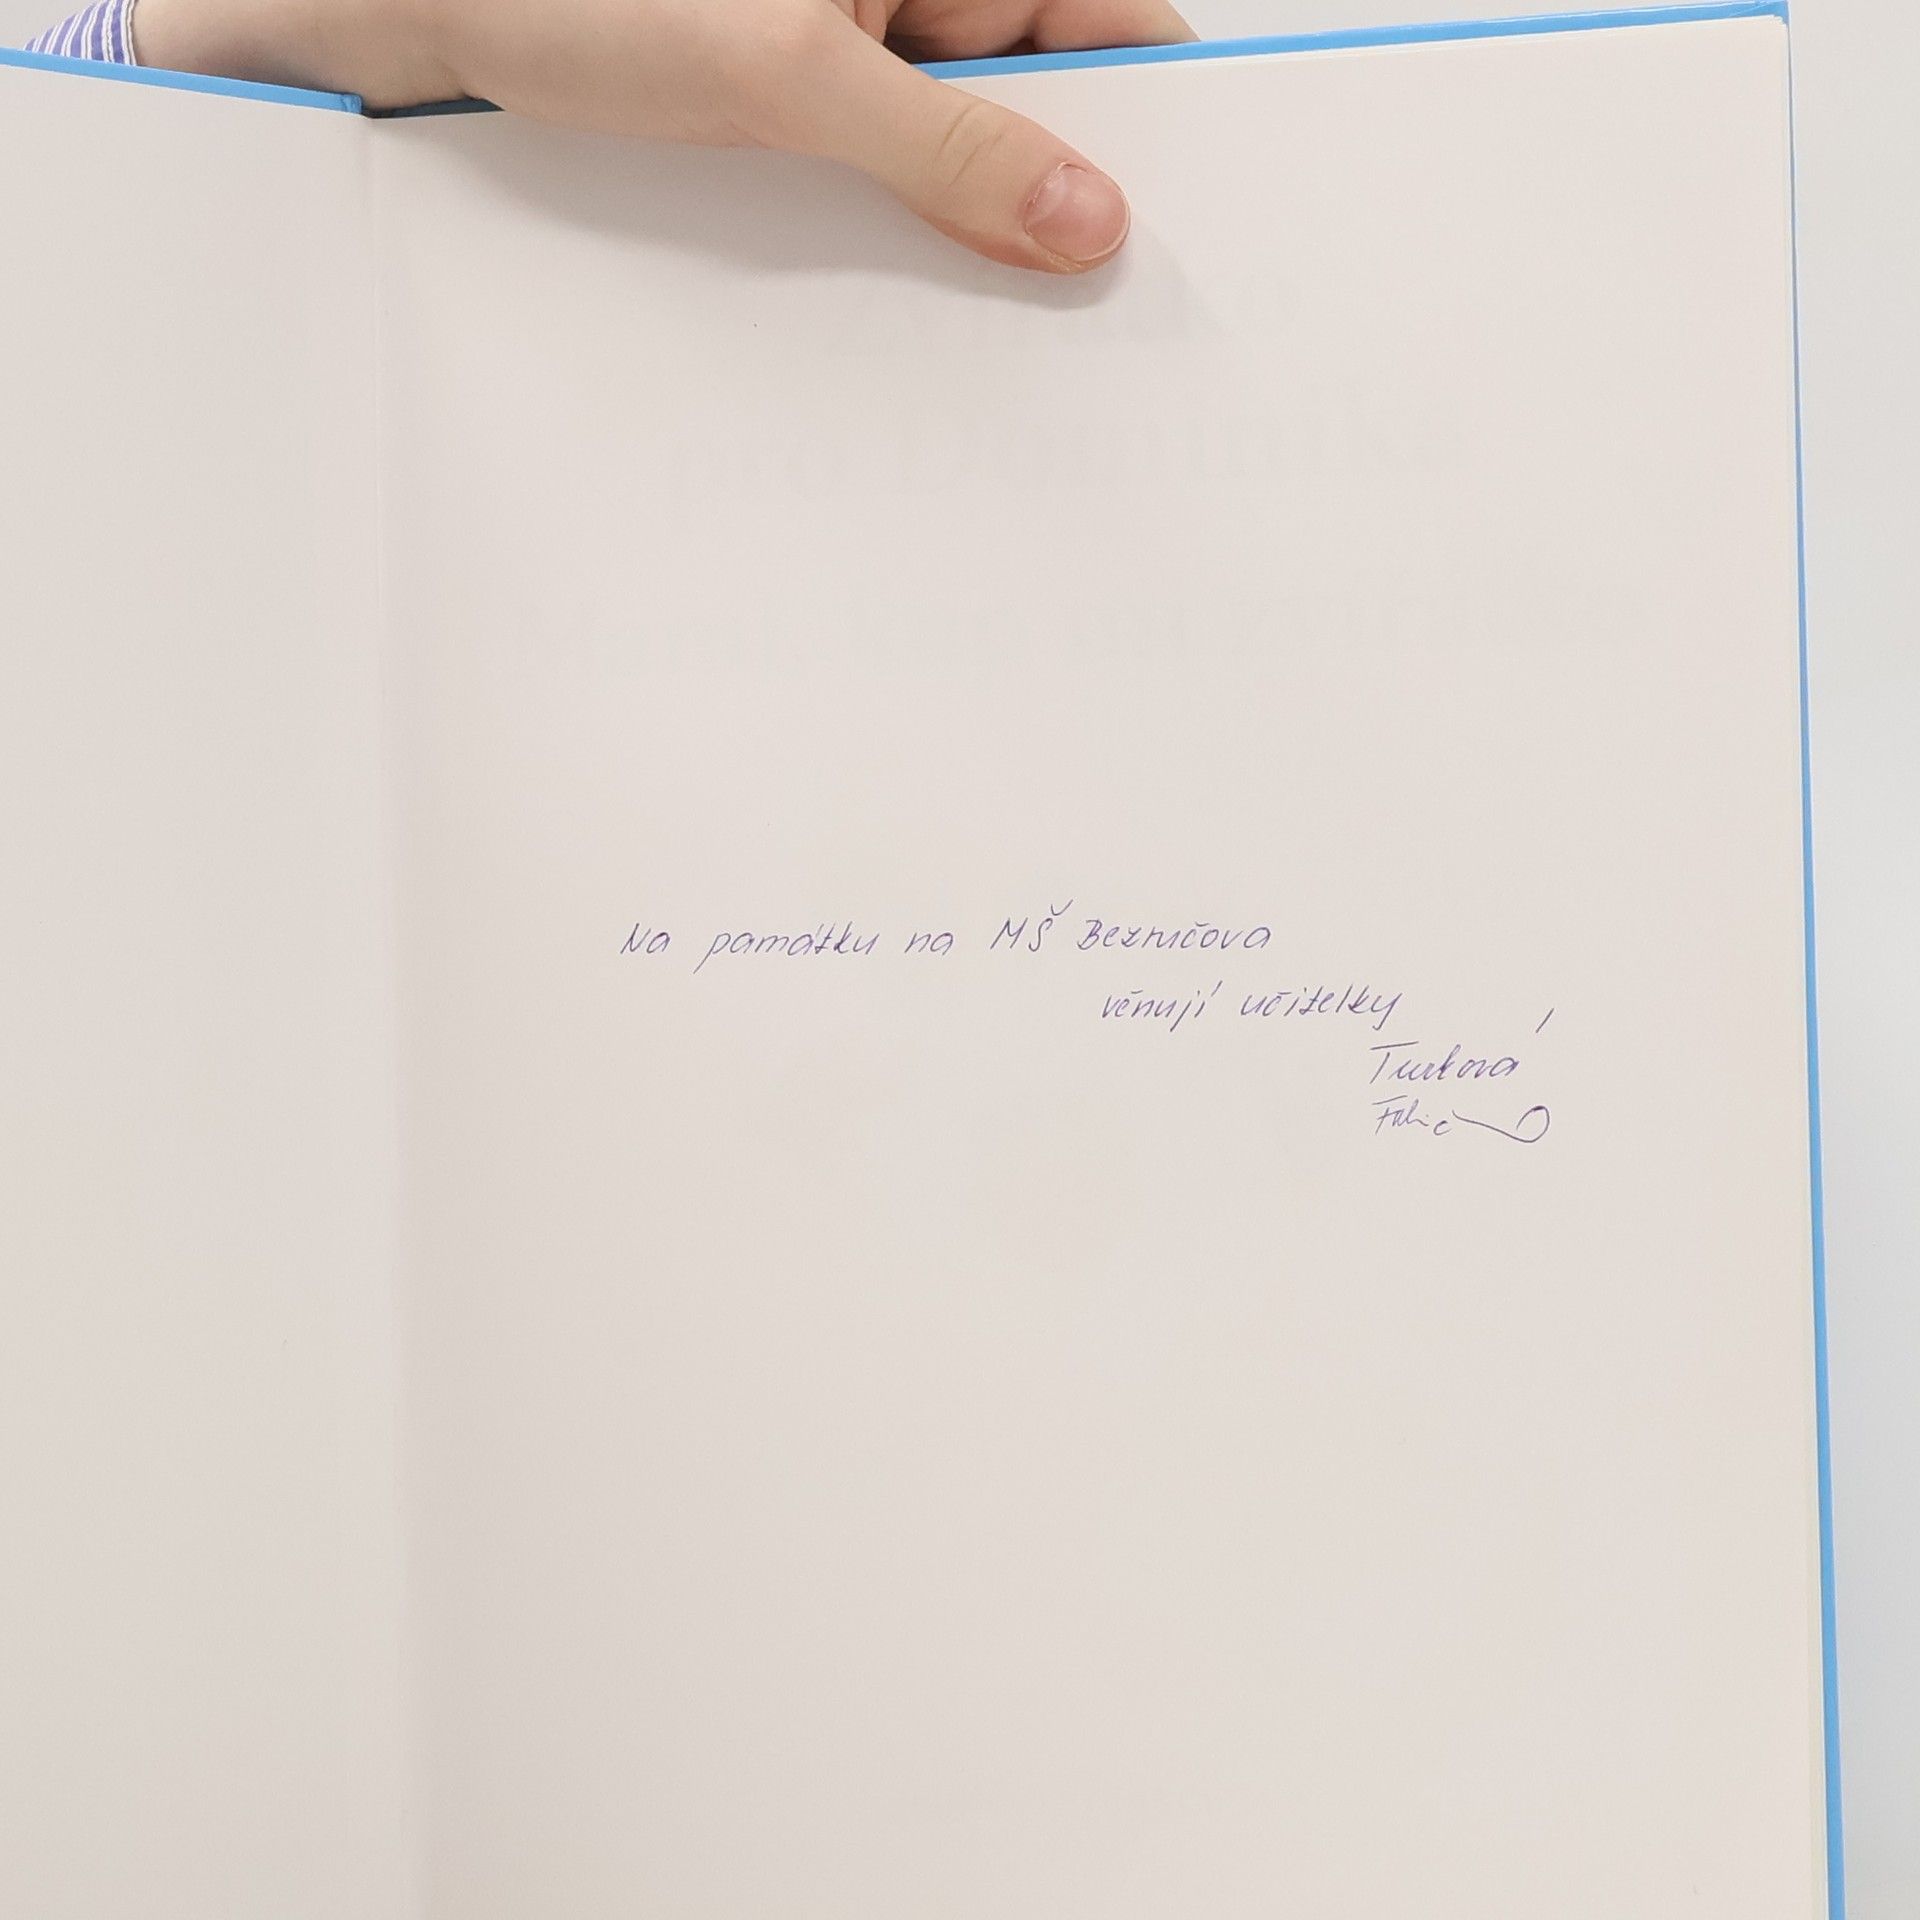 Na památku na MŠ Bezručova
věnují učitelky
Turková